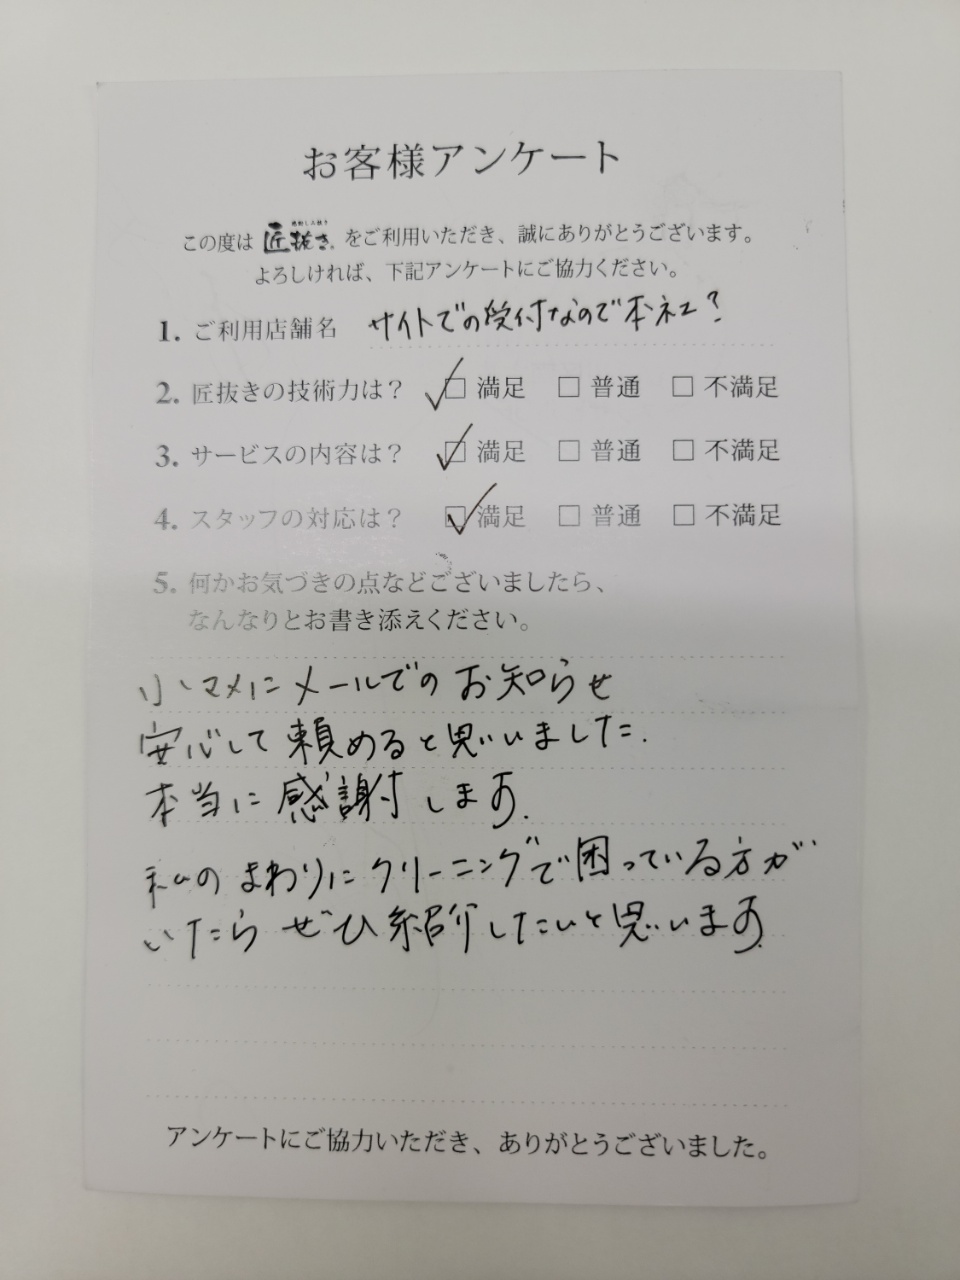 お客様アンケート
この度は 匠抜き をご利用いただき、誠にありがとうございます。
よろしければ、下記アンケートにご協力ください。
1. ご利用店舗名 サイトでの受付なので本社?
2. 匠抜きの技術力は? ☑ 満足 □ 普通 □ 不満足
3. サービスの内容は? ☑ 満足 □ 普通 □ 不満足
4. スタッフの対応は? ☑ 満足 □ 普通 □ 不満足
5. 何かお気づきの点などございましたら、
なんなりとお書き添えください。
小マメにメールでのお知らせ
安心して頼めると思いました.
本当に感謝します.
私のまわりにクリーニングで困っている方が
いたらぜひ紹介したいと思います.
アンケートにご協力いただき、ありがとうございました。